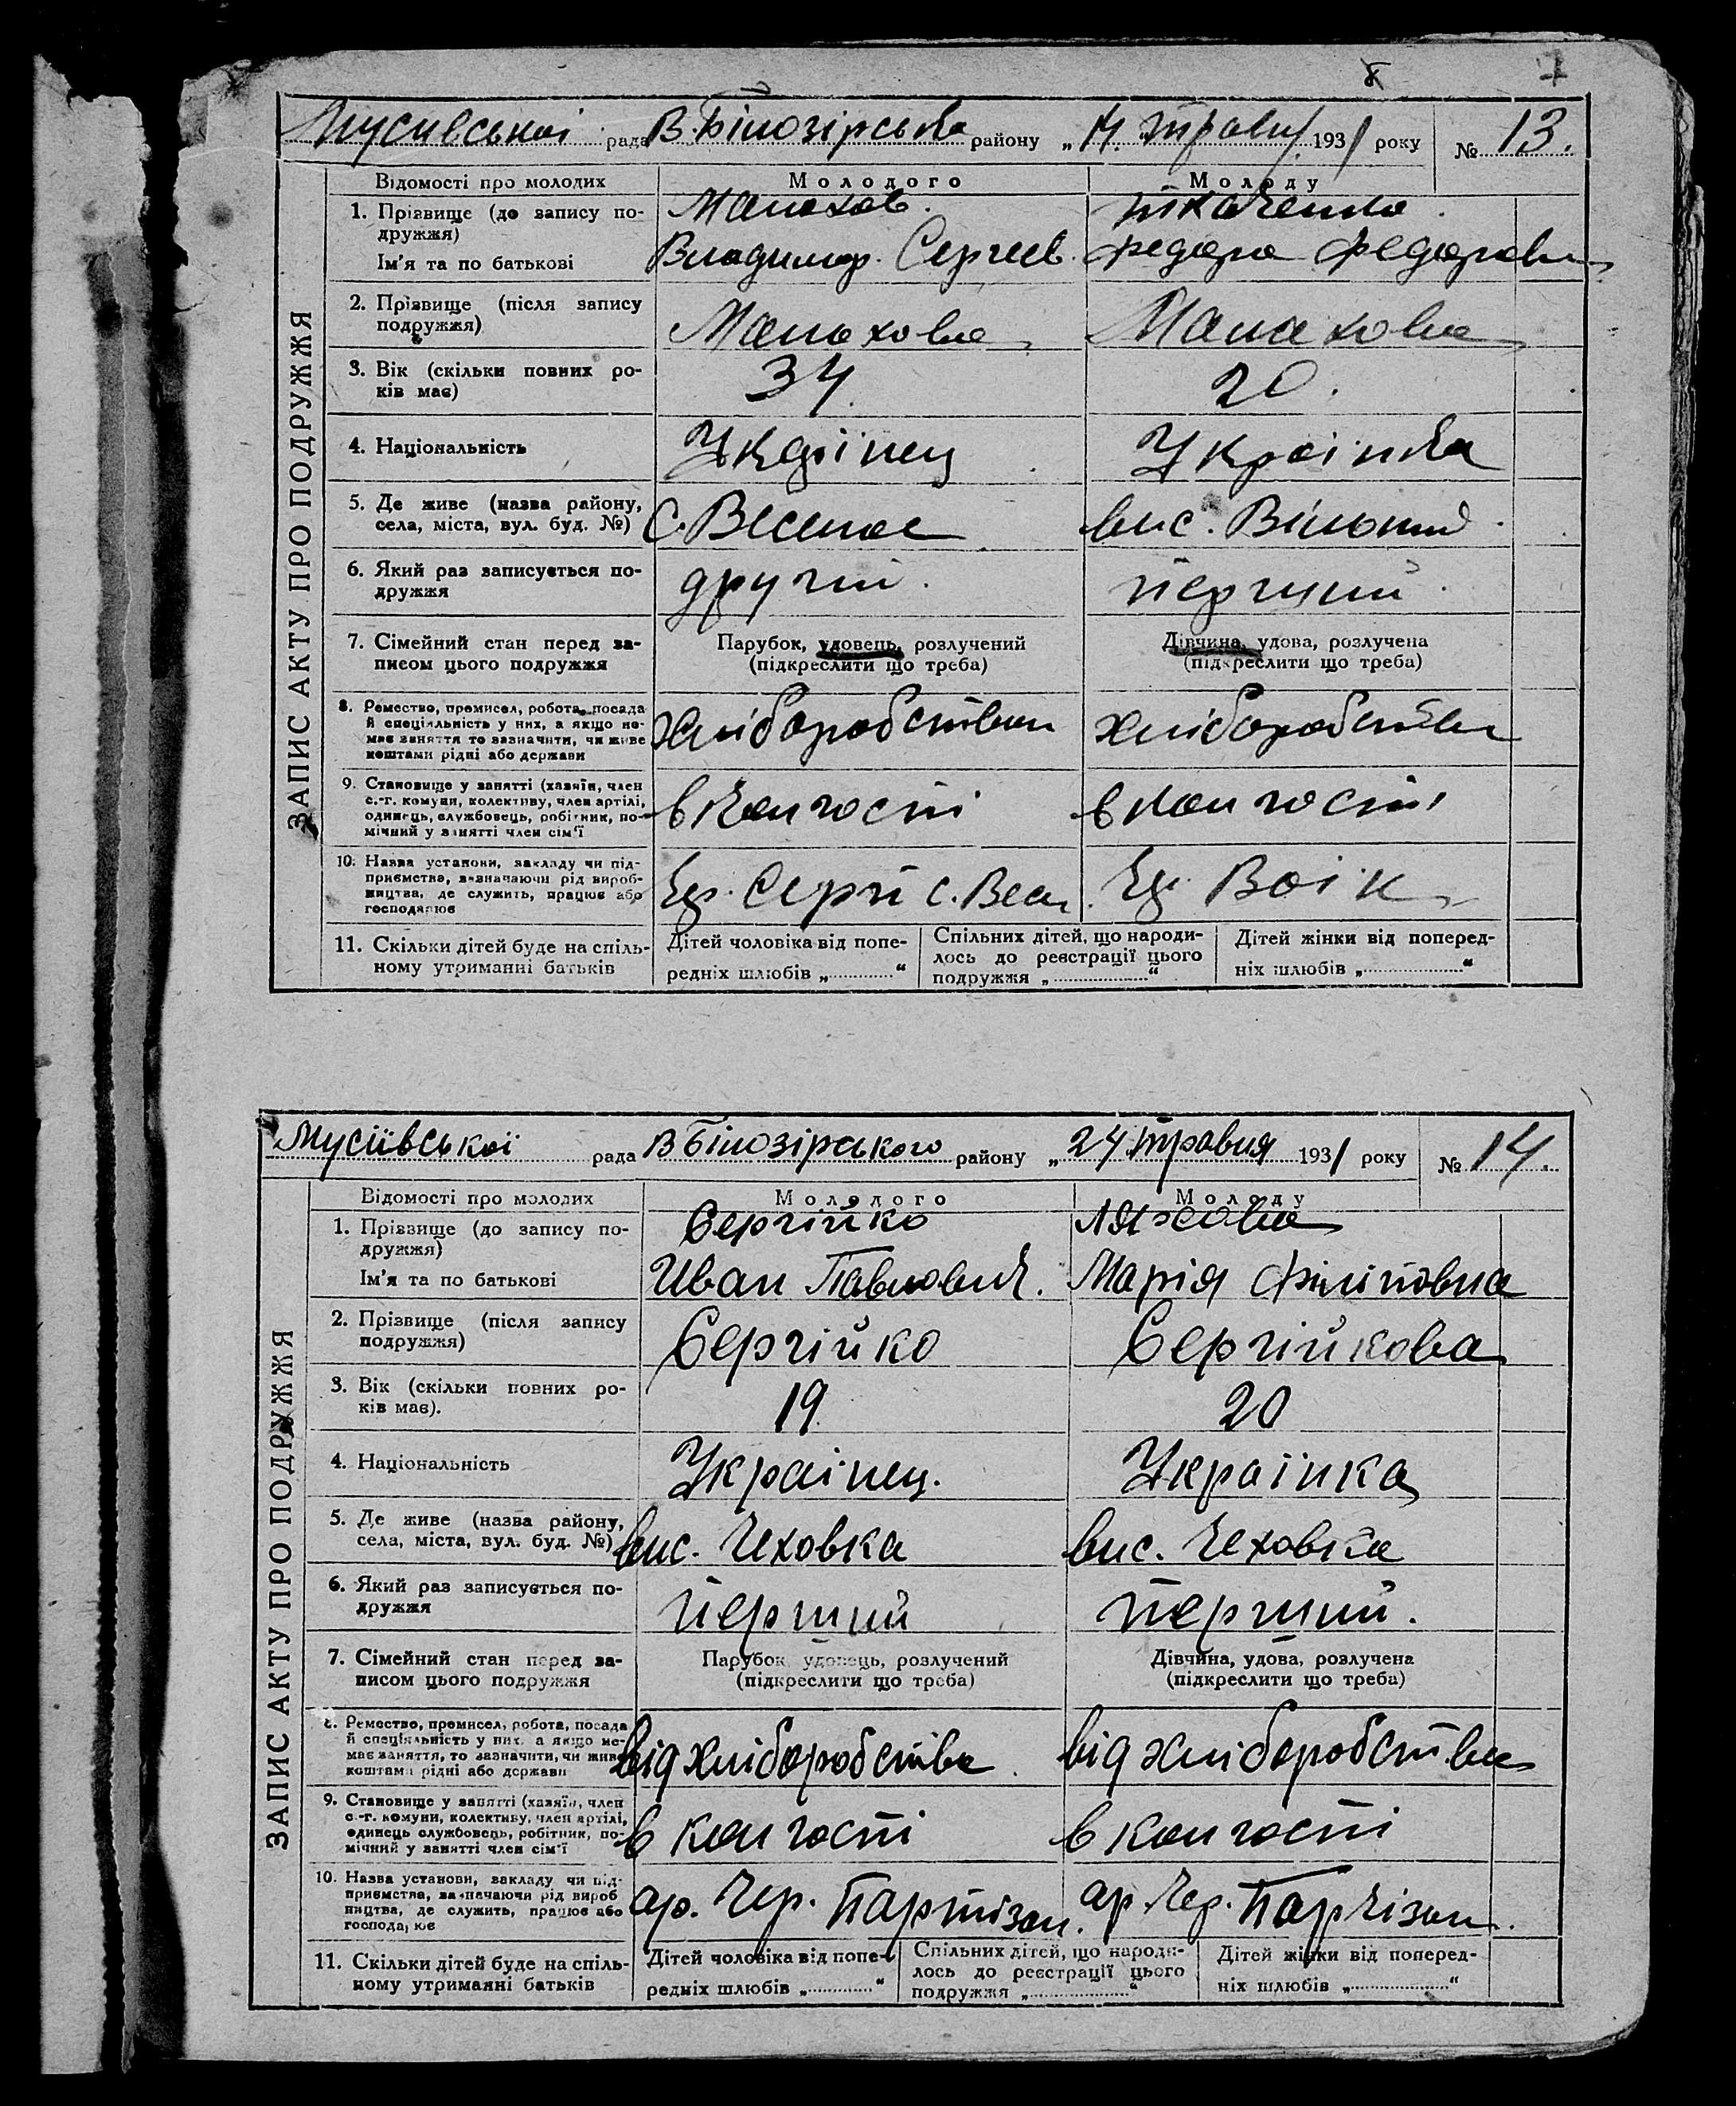 7
Мусіївської рада В. Білозірська району „14. травн. 1931 року № 13.
ЗАПИС АКТУ ПРО ПОДРУЖЖЯ
Відомості про молодих Молодого Молоду
1. Прізвище (до запису подружжя) Малахов. Ткаченко
Ім'я та по батькові Владимир. Сергеев. Федора Федоровн
2. Прізвище (після запису подружжя) Малахова Малахова
3. Вік (скільки повних років має) 34. 20.
4. Національність Українец Українка
5. Де живе (назва району, села, міста, вул. буд. №) С. Веселое вис. Вільний
6. Який раз записується подружжя другий. перший.
7. Сімейний стан перед записом цього подружжя Парубок, удовець, розлучений (підкреслити що треба) Дівчина, удова, розлучена (підкреслити що треба)
8. Ремество, промисел, робота, посада й спеціяльність у них, а якщо немає заняття то зазначити, чи живе коштами рідні або держави хліборобством хліборобства
9. Становище у занятті (хазяїн, член с.-г. комуни, колективу, член артілі, одинець, службовець, робітник, помічний у занятті член сім'ї в
10. Назва установи, закладу чи підприємства, зазначаючи рід виробництва, де служить, працює або господарює С. Вес.
11. Скільки дітей буде на спільному утриманні батьків Дітей чоловіка від попередніх шлюбів „ “ Спільних дітей, що народилось до реєстрації цього подружжя „ “ Дітей жінки від попередніх шлюбів „ “
Мусіївської рада В Білозірського району „24. травня 1931 року № 14.
ЗАПИС АКТУ ПРО ПОДРУЖЖЯ
Відомості про молодих Молодого Молоду
1. Прізвище (до запису подружжя) Сергійко Ляхова
Ім'я та по батькові Иван Павлович. Марія Філіповна
2. Прізвище (після запису подружжя) Сергійко Сергійкова
3. Вік (скільки повних років має). 19. 20
4. Національність Українец. Українка
5. Де живе (назва району, села, міста, вул. буд. №) вис. Чеховка вис. Чеховка
6. Який раз записується подружжя перший перший.
7. Сімейний стан перед записом цього подружжя Парубок, удовець, розлучений (підкреслити що треба) Дівчина, удова, розлучена (підкреслити що треба)
8. Ремество, промисел, робота, посада й спеціяльність у них, а якщо немає заняття, то зазначити, чи живе коштами рідні або держави від хліборобства від хліборобства
9. Становище у занятті (хазяїн, член с.-г. комуни, колективу, член артілі, одинець службовець, робітник, помічний у занятті член сім'ї в в
10. Назва установи, закладу чи підприємства, зазначаючи рід виробництва, де служить, працює або господарює ар. Чер. Партізан. ар. Чер. Партізан.
11. Скільки дітей буде на спільному утриманні батьків Дітей чоловіка від попередніх шлюбів „ “ Спільних дітей, що народилось до реєстрації цього подружжя „ “ Дітей жінки від попередніх шлюбів „ “